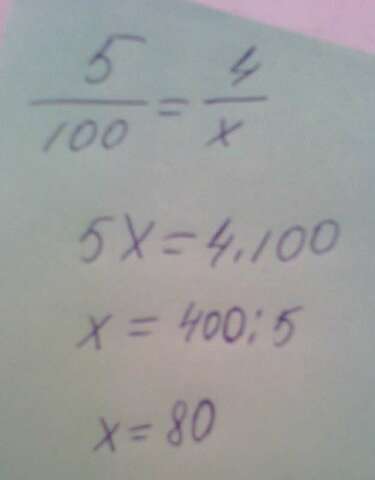 5/100 = 4/x
5x = 4.100
x = 400:5
x = 80